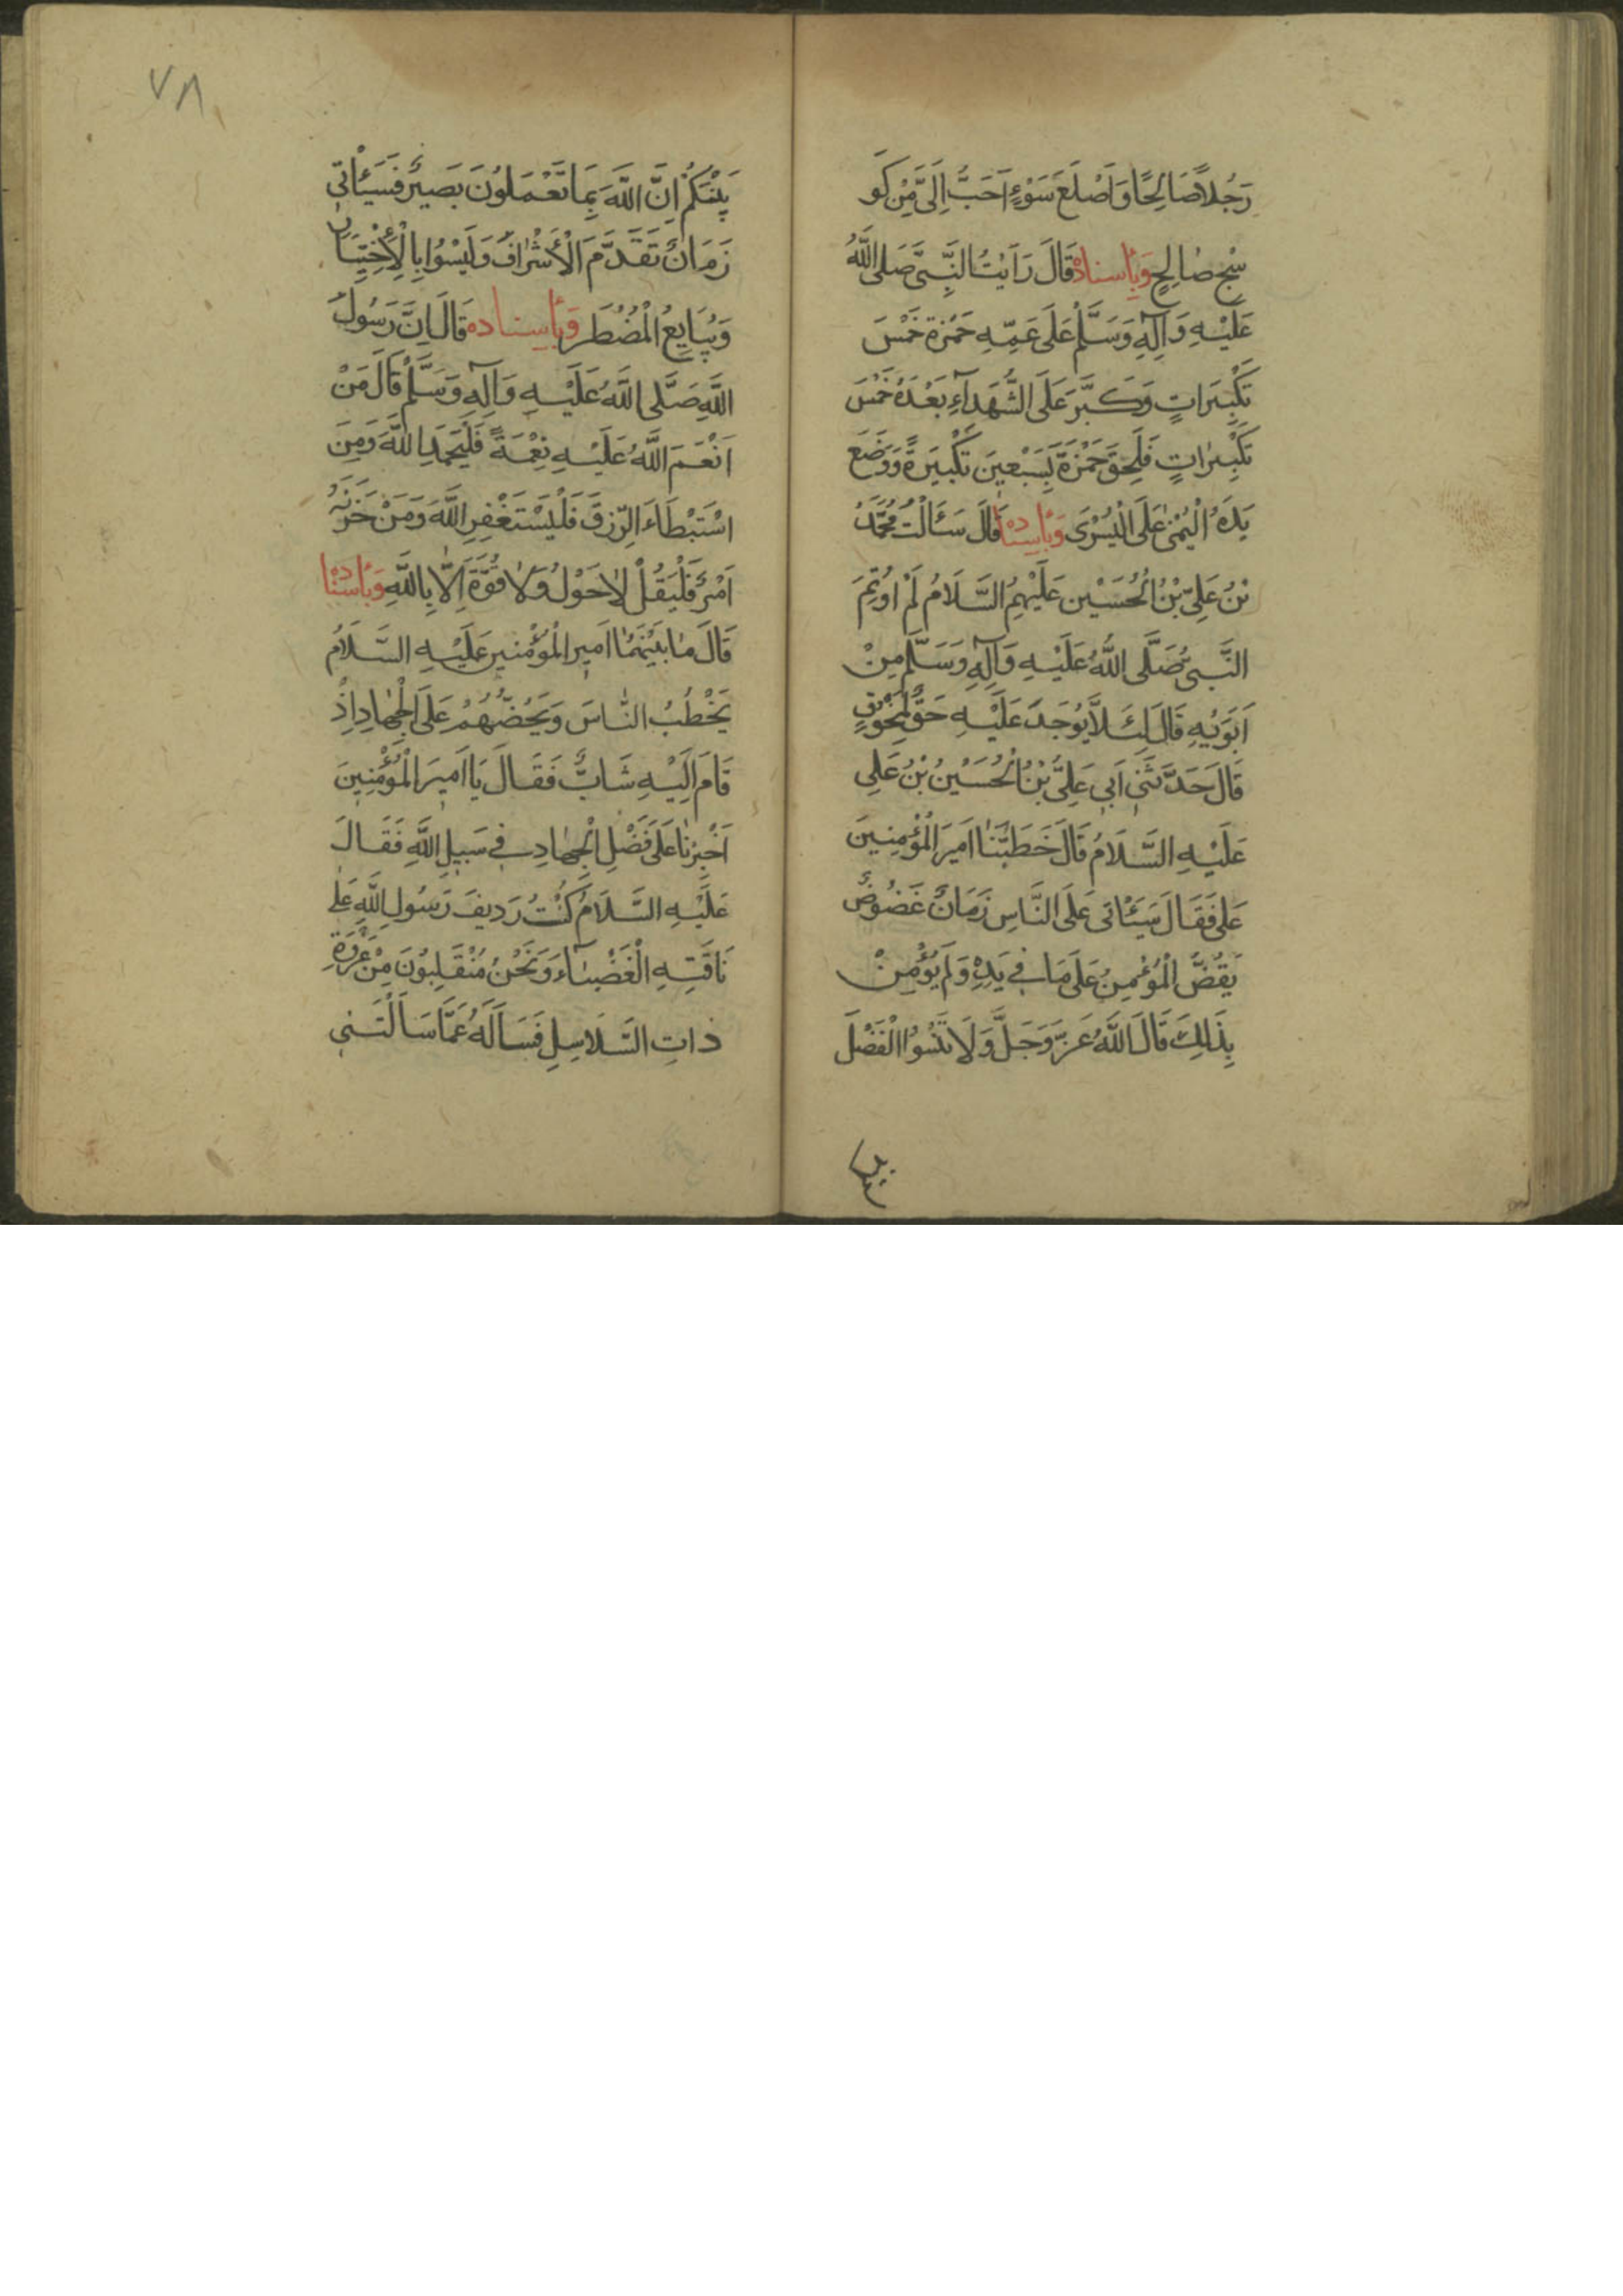 رَجُلاً صَالِحًا وَاَصْلَعَ سَوْءٍ اَحَبُّ اِلَىَّ مِنْ كَو
سْجٍ صٰالِحٍ وَبِأسنادْه قَالَ رَاَيْتُ النَّبِىَّ صَلى اللَّهُ
عَلَيْهِ وَآلِهِ وَسَلَّمْ عَلَى عَمِّهِ حَمْزةَ خَمْسَ
تَكْبِيَراتٍ وَكَبَّرَ عَلَى الشُّهَدآءِ بَعْدَهُ خَمْسَ
تَكْبِيراتٍ فَلَحِقَ حَمْزَةَ بِسَبْعِينَ تَكْبيَرةً وَوَضَعَ
يَدَهُ الْيُمْنىٰ عَلَى الْيُسْرَى وَبأِسنْادْه قَالَ سَئَالْتُ مُحَمَّدُ
بْنُ عَلِىّ بْنُ الْحُسَيْن عَلَيْهِمُ السَّلَامُ لَمْ اُوتِمَ
النَّبِىُّ صَلَّى اللَّهُ عَلَيْهِ وَآلِهِ وَسَلَّم مِنْ
اَبَوَيْهِ قَالَ لِئَلاَّ يُوجَدَ عَلَيْهِ حَقٌّ لِمَخْلُوْقٍ
قَالَ حَدَّثَنىِ اَبىِ عَلِىُّ بْنُ الْحُسَيْنُ بْنُ عَلِى
عَلَيْهِ السَّلَامُ قَالَ خَطَبَنٰا اَمِيَر الْمُؤْمِنِينَ
عَلى فَقَالَ سَيَئْاتى عَلَى النَّاسِ زَمَانٌ عَضُوضٌ
يَعُضُّ الْمُؤْمِنُ عَلَى مَا فىِ يَدِهِ وَلَمْ يُؤْمِنْ
بِذَلِكَ قَالَ اللَّهُ عَزَّ وَجَلَّ وَلَا تَنْسَوُا الْفَضْلَ
بَيْنَكُمْ اِنَّ اللَّهَ بِمَا تَعْمَلوُنَ بَصيِرٌ فَسَيَئْاتى
زَمَانٌ تَقَدَّمَ الْأَشْرٰافُ وَلَيْسُوا بِالْأِخْتِيَارِ
وَيُبَايِعُ الْمُضْطَر وَبأِسناده قَالَ اِنَّ رَسُولَ
اللَّهِ صَلَّى اللَّهُ عَلَيْهِ وَآلِهِ وَسَلَّمْ قَالَ مَنْ
اَنْعَمَ اللَّهُ عَلَيْهِ نِعْمَةً فَلْيَحْمَدِ اللَّهَ وَمِنَ
اسْتَبْطَاءَ الرِّزقَ فَلْيَسْتَغْفِرِ اللَّهَ وَمَنْ حَزَنَهُ
اَمْرٌ فَلْيَقُلْ لاٰحَوْلُ وَلاٰ قُوَّةَ اِلاّٰ بِاللَّهِ وَبأِسنْادْه
قَالَ مٰا بَيْنَمٰا اَميِر الْمُؤْمِنيِر عَلَيْهِ السَّلَامُ
يَخْطُبُ النّٰاسَ وَيَحُضُّهُمْ عَلَى الْجِهٰادِ اِذْ
قَامَ اِلَيْهِ شَابٌّ فَقَالَ يَا اَميِرَ الْمُؤْمِنِينَ
اَخْبِرْنٰا عَلَى فَضْلِ الْجِهٰادِ فىِ سَبيِلِ اللَّهِ فَقَالَ
عَلَيْهِ السَّلَامُ كُنْتُ رَديِفَ رَسُولِ اللَّهِ عَلى
نَاقَتِهِ الْغَضْبٰآءِ وَنَحْنُ مُنْقَلِبُونَ مِنْ غَزْوَةِ
ذاتِ السَّلَاسِلِ فَسَاَلَهُ عَمَّا سَاَلْتَنىِ
بينكم
٧٨